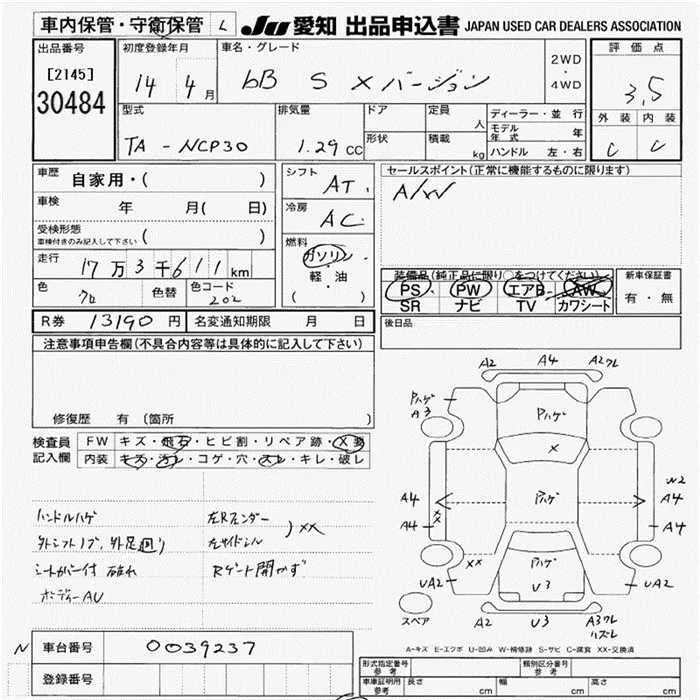 車内保管・守衛保管 L
JU 愛知 出品申込書 JAPAN USED CAR DEALERS ASSOCIATION
出品番号
[2145]
30484
初度登録年月
14 4月
車名・グレード
bB S Xバージョン
2WD
・
4WD
評価点
3,5
外装 内装
C C
型式
TA - NCP30
排気量
1.29 CC
ドア
形状
定員
人
積載
kg
ディーラー・並行
モデル年式 年
ハンドル 左・右
車歴
自家用・( )
車検
年 月( 日)
受検形態
車検付きのみ記入して下さい ( )
走行
17万3千611km
色
クロ
色替
色コード
202
シフト
AT
冷房
AC
燃料
ガソリン
・
軽・油
( )
セールスポイント(正常に機能するものに限ります)
A/W
装備品(純正品に限り○をつけてください)
PS PW エアB AW
SR ナビ TV カワシート
新車保証書
有・無
後日品
R券 13190円 名変通知期限 月 日
注意事項申告欄(不具合内容等は具体的に記入して下さい)
修復歴 有 (箇所 )
検査員
記入欄
FW キズ・飛石・ヒビ割・リペア跡・X要
内装 キズ・汚レ・コゲ・穴・スレ・キレ・破レ
ハンドルハゲ
外シフトノブ、外足廻り
シートカバー付 破れ
ボディーAU
左Rフェンダー
左サイドシル
) XX
Rゲート開かず
A2 A4 A2ワレ
Pハゲ
A3
Pハゲ
X
A4
A4
X
X
Pハゲ
W2
A4
A4
UA2
XX
Pハゲ
U3
UA2
スペア
A2 U3 A3ワレ
ハズレ
A-キズ E-エクボ U-凹み W-補修跡 S-サビ C-腐食 XX-交換済
N 車台番号 0039237
登録番号
形式指定番号
参考
類別区分番号
参考
車庫証明用
参考
長さ cm 幅 cm 高さ cm